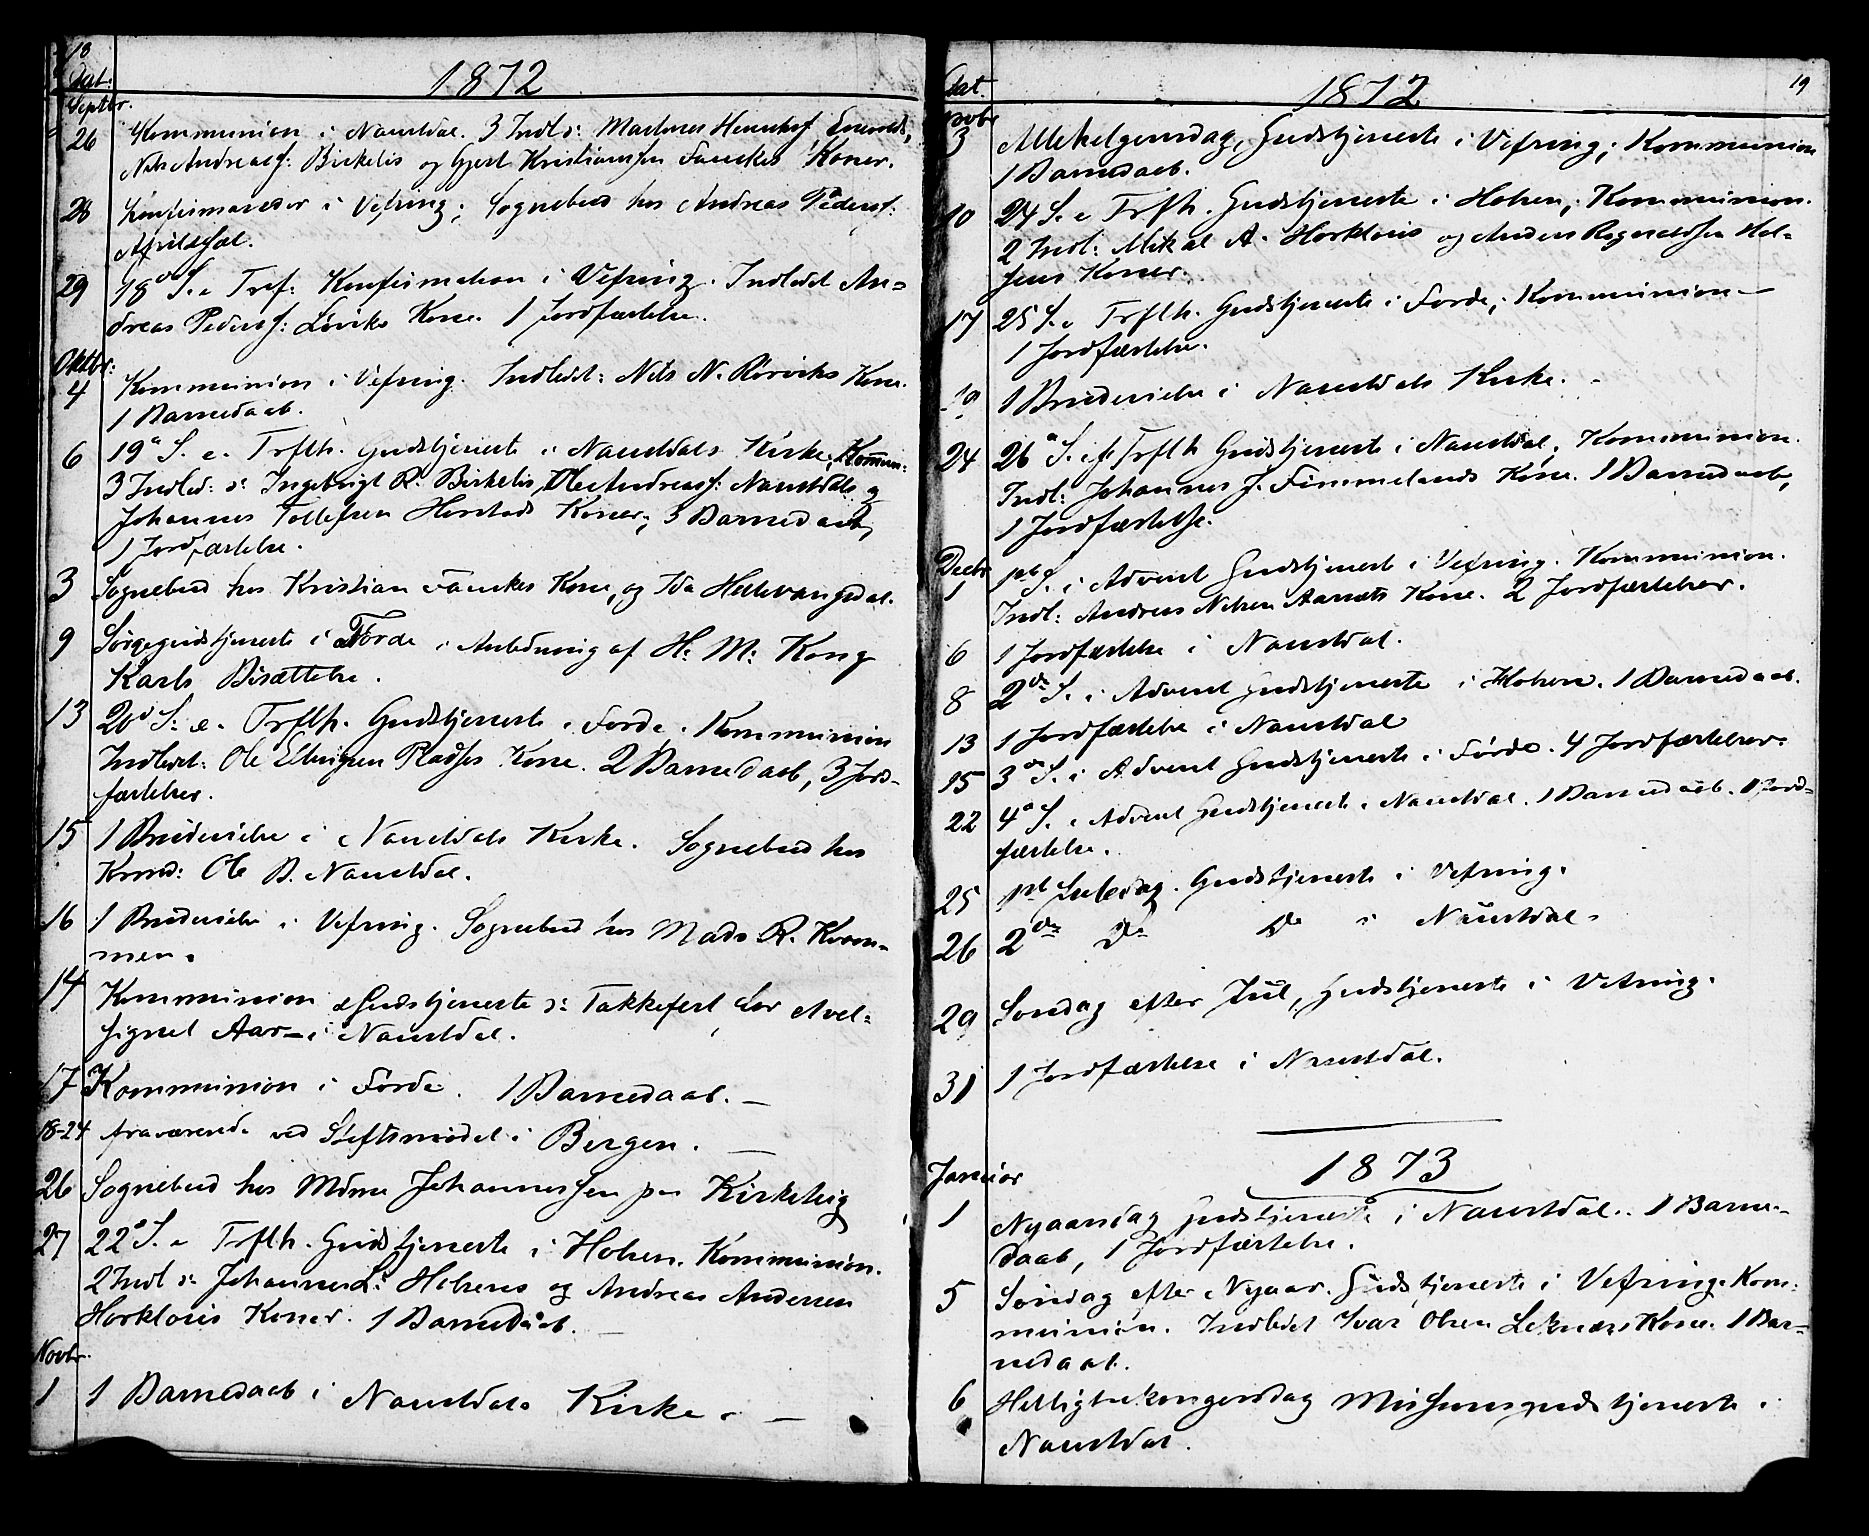 18
Dat. 1872
Septbr.
26 Kommunion i Naustdal. 3 Indl: Martines
Nils Andreasf: Birkelis og Gjert Kristiansen Fanekes Koner.
28 Konfirmander i Vefring; Sognebud hos Andreas Pedersf:
29 18de S. e. Tref: Konfirmation i Vefring. Indledet An=
dreas Pedersf: Löviks Kone. 1 Jordfæstelse.
Oktbr:
4 Kommunion i Vefring. Indledt: Nils N. Rörviks Kone.
1 Barnedaab.
6 19de S. e. Trflh. Gudstjeneste i Naustdals Kirke, Kommun:
3 Indled: Ingebrigt R. Birkelis, Ole Andreasf: Naustdals og
Johannes Tollefsen Horstads Koner, 3 Barnedaab,
1 Jordfæstelse.
3 Sognebud hos Kristian Fanekes Kone, og Ida Hellevangsdal.
9 Sörgegudstjeneste i Förde i Anledning af H: M: Kong
Karls Bisættelse.
13 20de S: e. Trflh. Gudstjeneste i Förde. Kommunion
Indledt: Ole Ellingsen Kone. 2 Barnedaab, 3 Jord-
fæstelser.
15 1 Brudevielse i Naustdals Kirke. Sognebud hos
Ole D. Naustdal.
16 1 Brudevielse i Vefring. Sognebud hos Mads R. Kvam-
men.
14 Kommunion & Gudstjeneste o: Takkefest for Avel=
signet Aar – i Naustdal.
17 Kommunion i Förde. 1 Barnedaab. –
18-24 fraværende ved Stiftsmödet i Bergen. –
26 Sognebud hos Mdme Johannessen paa Kirketeig
27 22de S. e. Trflh. Gudstjeneste i Holsen. Kommunion.
2 Indl o: Johannes L: Holsens og Andreas Andersen
Horklons Koner. 1 Barnedaab. –
Novbr.
1 1 Barnedaab i Naustdals Kirke. –
19
Dat. 1872
Novbr
3 Allehelgensdag, Gudstjeneste i Vefring; Kommunion
1 Barnedaab.
10 24 S. e. Trflh. Gudstjeneste i Holsen, Kommunion.
2 Indl: Mikal A. Horklons og Anders Hol=
sens Koner.
17 25 S. e. Trflh. Gudstjeneste i Förde, Kommunion –
1 Jordfæstelse.
19 1 Brudevielse i Naustdals Kirke. –
24 26de S. ef. Trflh Gudstjeneste i Naustdal. Kommunion.
Indl: Johannes J. Fimmelands Kone. 1 Barnedaab,
1 Jordfæstelse.
Decbr
1 1ste S. i Advent Gudstjeneste i Vefring. Kommunion.
Indl: Andreas Nilsen Aarsets Kone. 2 Jordfæstelser.
6 1 Jordfæstelse i Naustdal.
8 2de S. i Advent Gudstjeneste i Holsen. 1 Barnedaab.
13 1 Jordfæstelse i Naustdal
15 3de S. i Advent Gudstjeneste i Förde. 4 Jordfæstelser.
22 4de S. i Advent Gudstjeneste i Naustdal. 1 Barnedaab. 1 Jord-
fæstelse.
25 1ste Juledag. Gudstjeneste i Vefring.
26 2den Do Do i Naustdal.
29 Söndag efter Jul, Gudstjeneste i Vefring.
31 1 Jordfæstelse i Naustdal.
1873
Januar
1 Nyaarsdag Gudstjeneste i Naustdal. 1 Barne-
daab, 1 Jordfæstelse.
5 Söndag efter Nyaar. Gudstjeneste i Vefring. Kom-
munion. Indledet Ivar Olsen Leknæs Kone. 1 Bar-
nedaab.
6 Helligtrekongersdag Missionsgudstjeneste i
Naustdal.